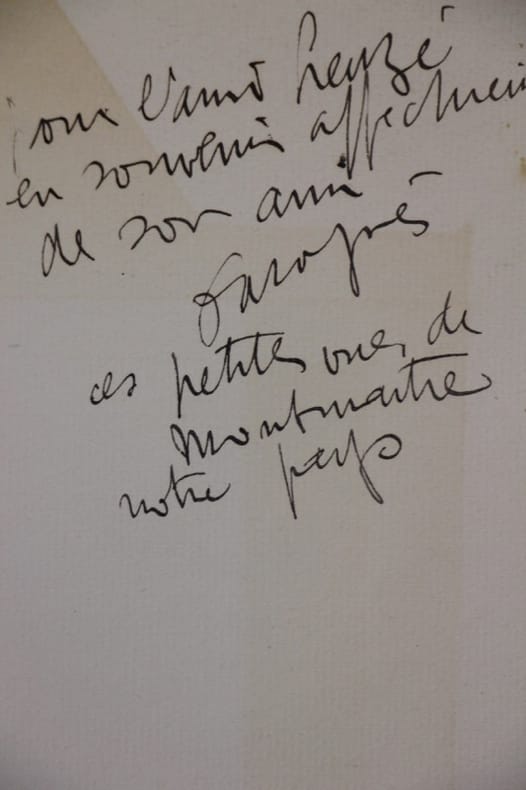 pour l'ami Heuzé
en souvenir affectueux
de son ami
Daragnès
ces petites vues de
Montmartre
notre pays